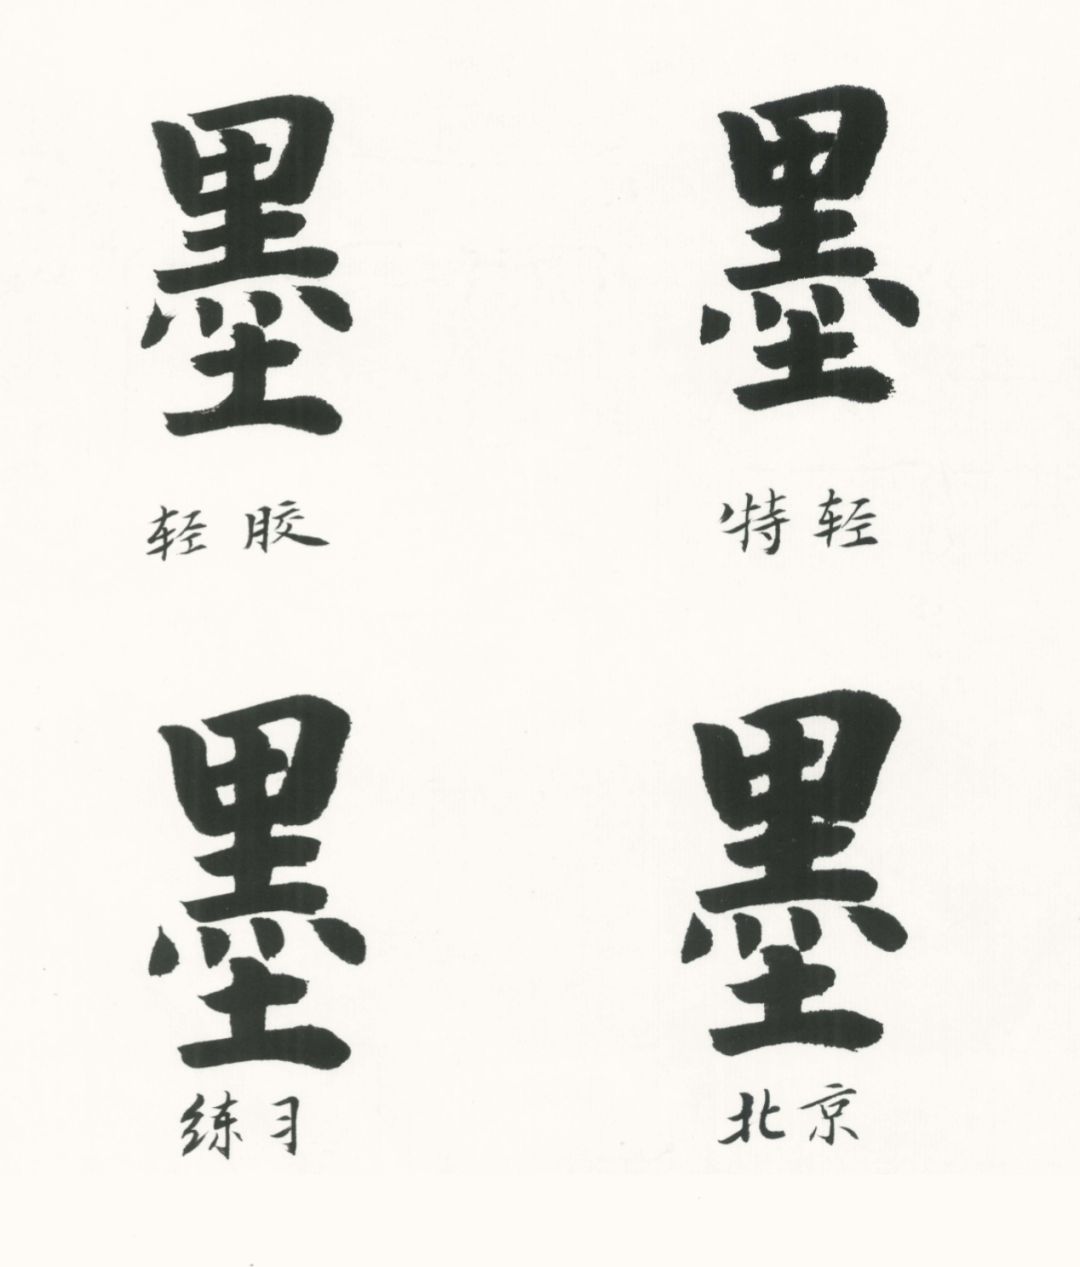 墨 墨
轻胶 特轻
墨 墨
练习 北京